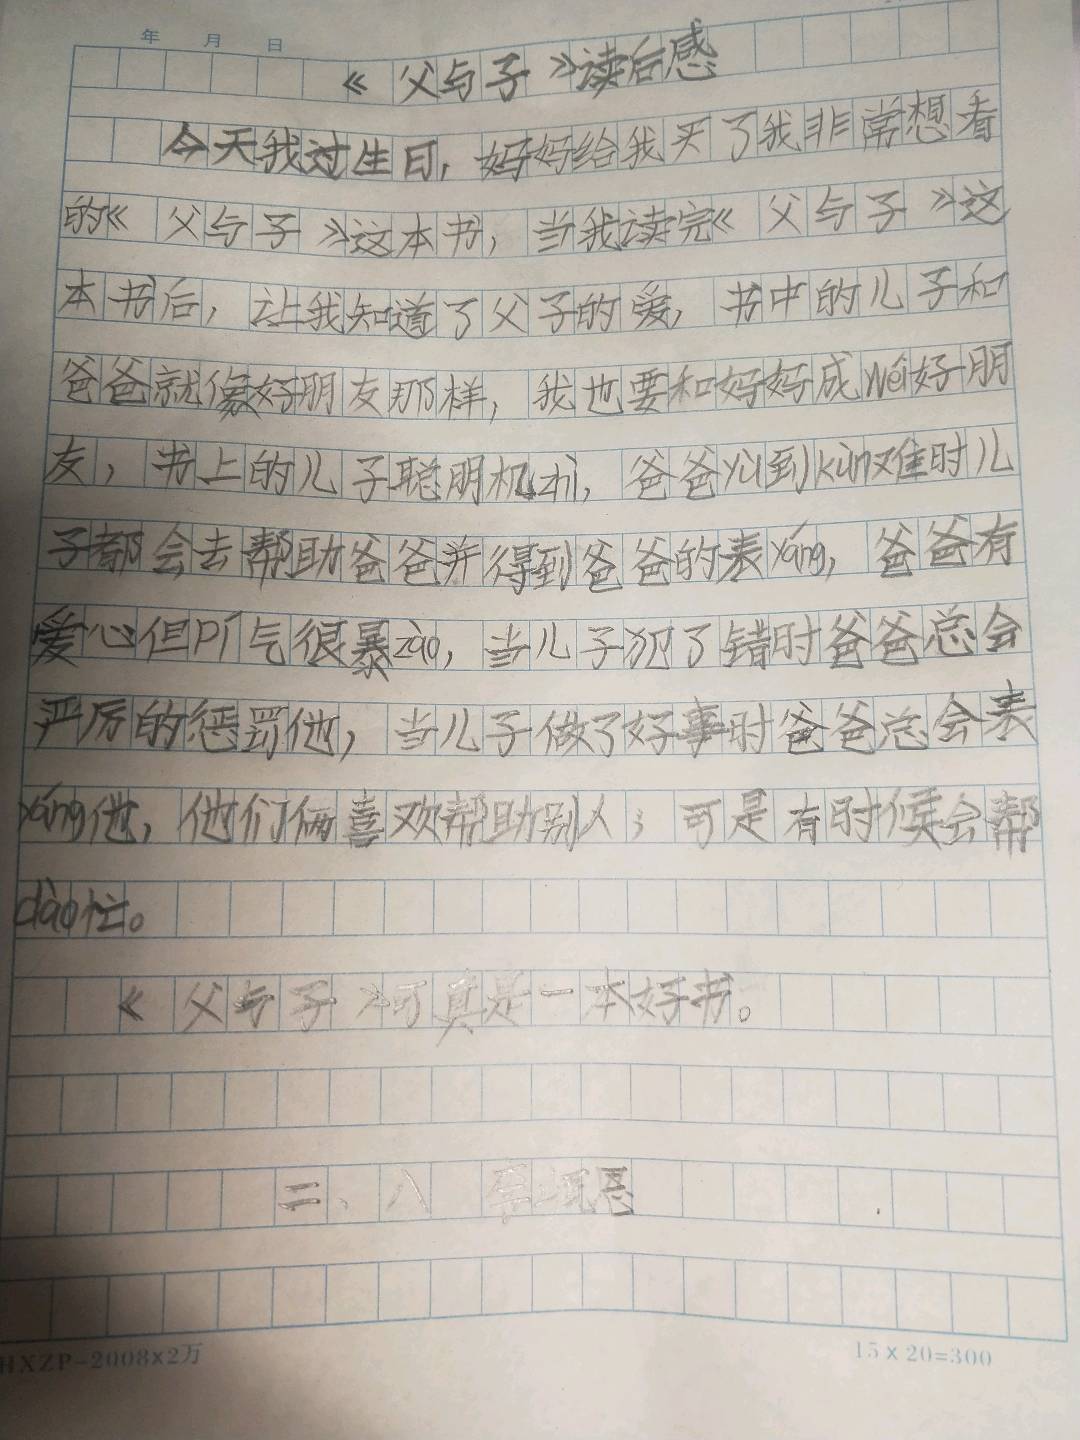 年 月 日
《父与子》读后感
今天我过生日，妈妈给我买了我非常想看
的《父与子》这本书，当我读完《父与子》这
本书后，让我知道了父子的爱，书中的儿子和
爸爸就像好朋友那样，我也要和妈妈成wéi好朋
友，书上的儿子聪明机zhì，爸爸yù到kùn难时儿
子都会去帮助爸爸并得到爸爸的表yáng，爸爸有
爱心但pí气很暴zào，当儿子犯了错时爸爸总会
严厉的惩罚他，当儿子做了好事时爸爸总会表
yáng他，他们俩喜欢帮助别人；可是有时候会帮
dào忙。
《父与子》可真是一本好书。
二、八
HXZP-2008×2万
15×20=300